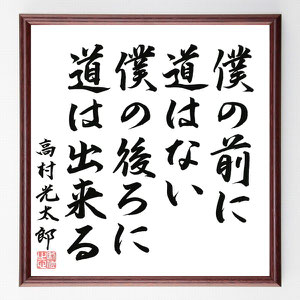 僕の前に
道はない
僕の後ろに
道は出来る
高村光太郎